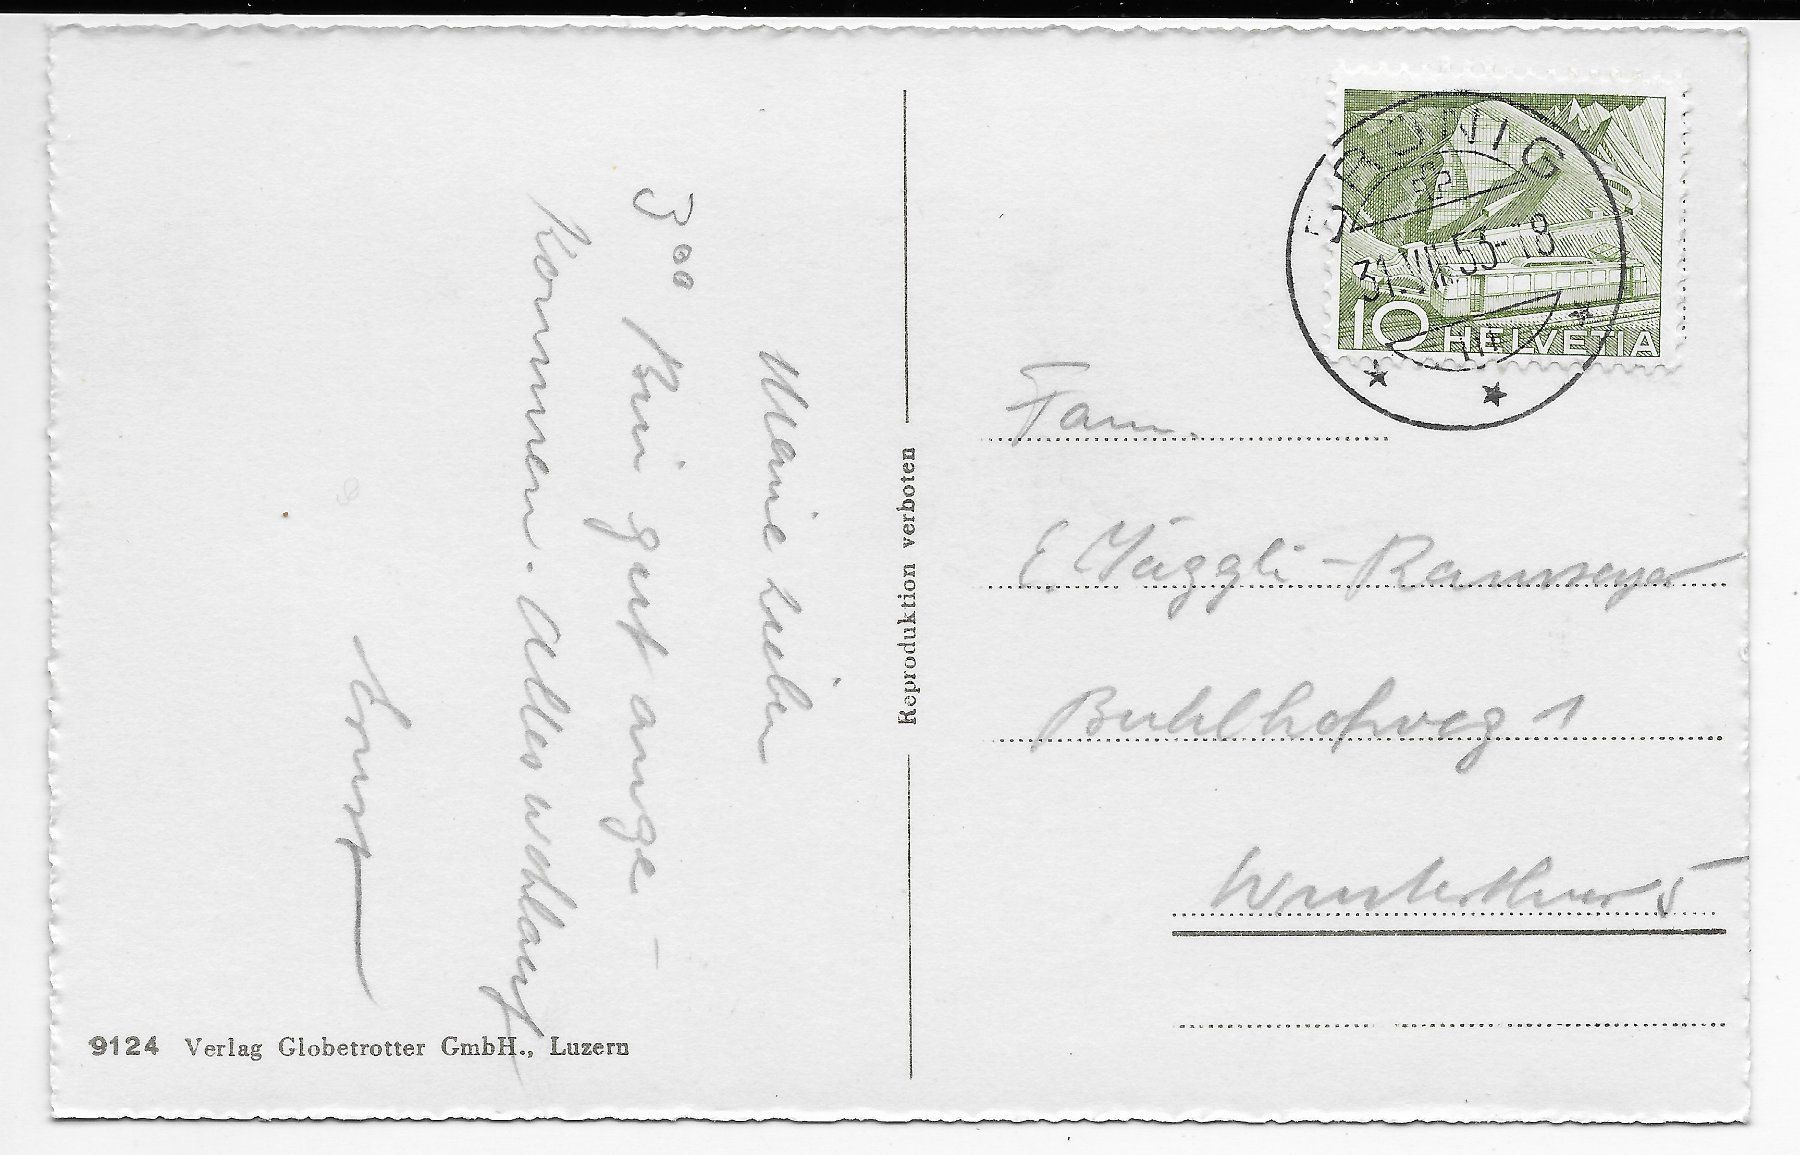 Meine Lieben
3⁰⁰ Bin gut ange-
kommen. Alles wohlauf
Ernst
9124 Verlag Globetrotter GmbH., Luzern
Reproduktion verboten
BRÜNIG
31.VII.53-18
10 HELVETIA
Fam.
E. Jäggli-Ramseyer
Buhlhofweg 1
Winterthur 5